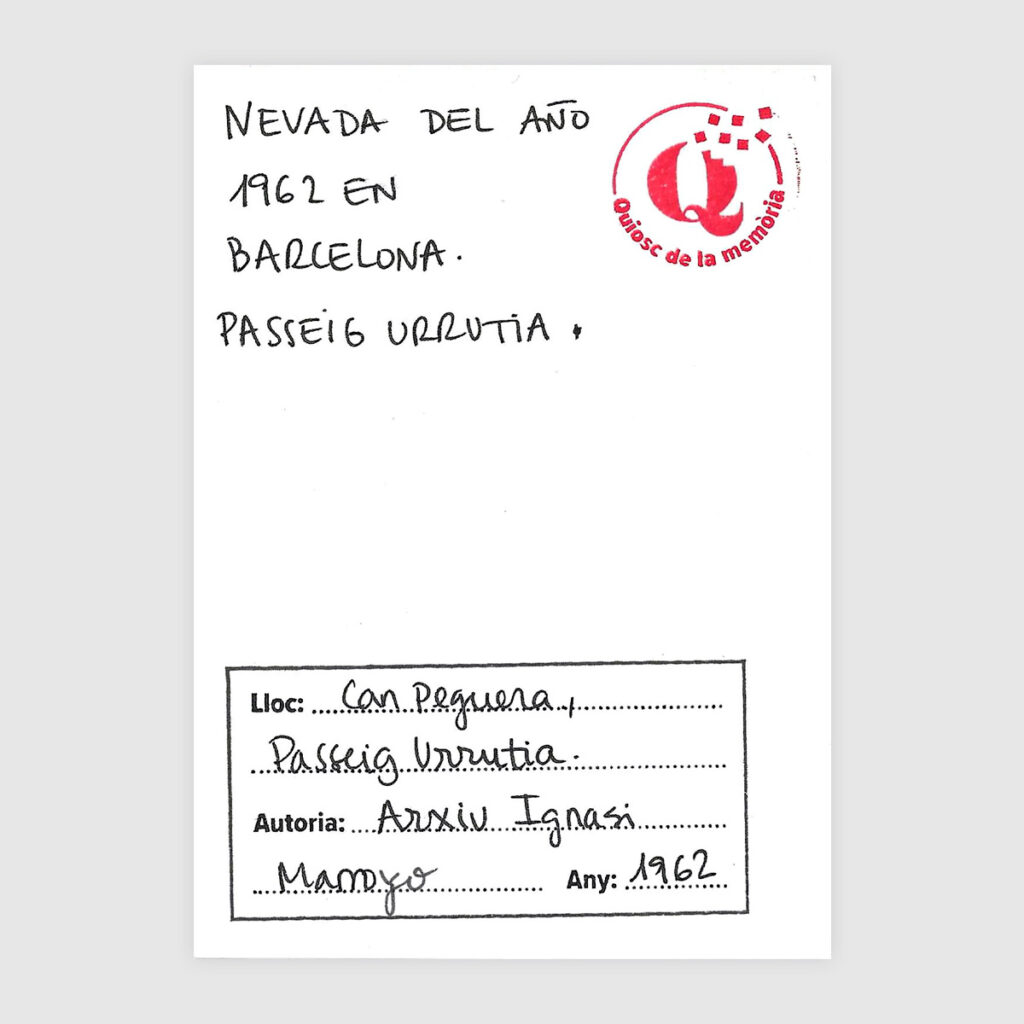 NEVADA DEL AÑO
1962 EN
BARCELONA.
PASSEIG URRUTIA.
Q
Quiosc de la memòria
Lloc: Can Peguera,
Passeig Urrutia.
Autoria: Arxiu Ignasi
Marroyo Any: 1962